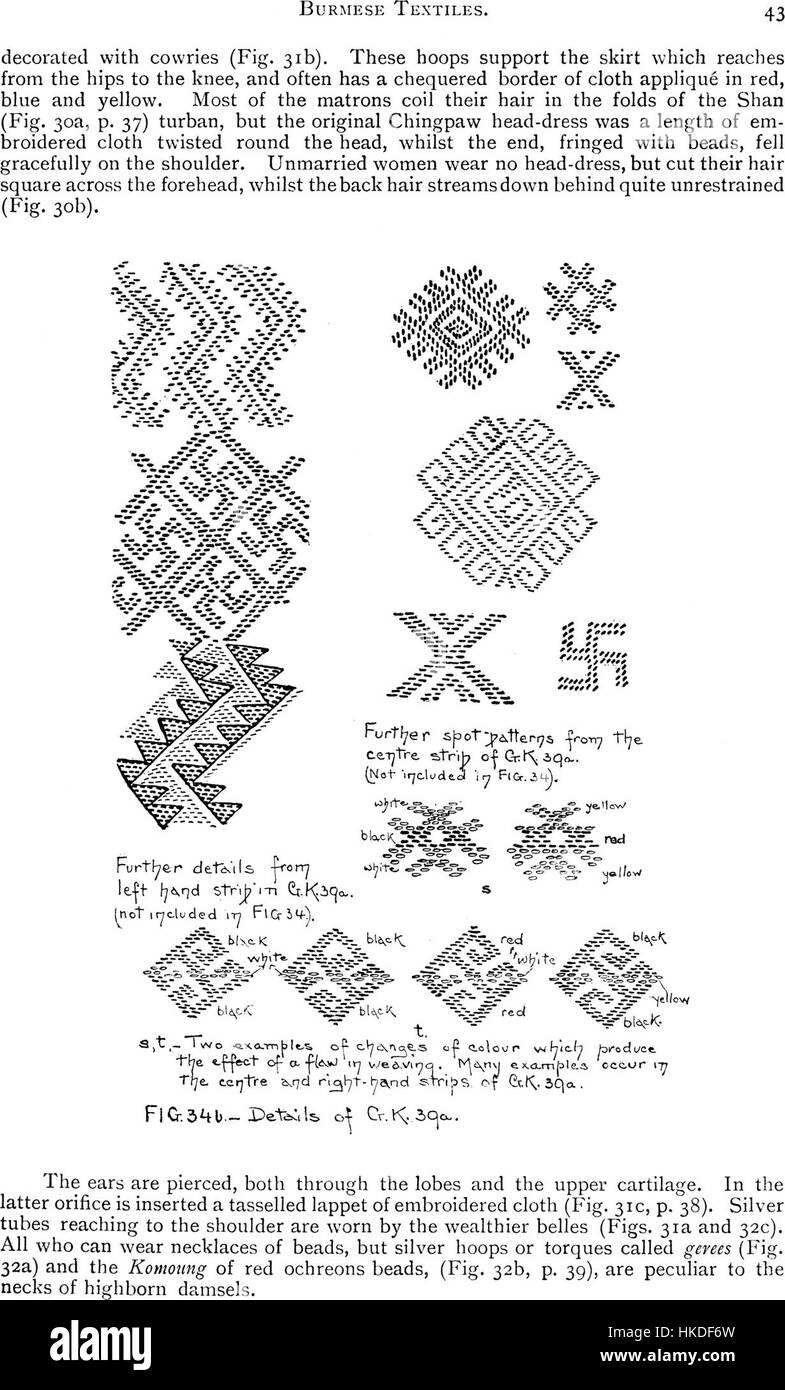 BURMESE TEXTILES. 43
decorated with cowries (Fig. 31b). These hoops support the skirt which reaches
from the hips to the knee, and often has a chequered border of cloth appliqué in red,
blue and yellow. Most of the matrons coil their hair in the folds of the Shan
(Fig. 30a, p. 37) turban, but the original Chingpaw head-dress was a length of em-
broidered cloth twisted round the head, whilst the end, fringed with beads, fell
gracefully on the shoulder. Unmarried women wear no head-dress, but cut their hair
square across the forehead, whilst the back hair streams down behind quite unrestrained
(Fig. 30b).
Further spot-patterns from the
centre strip of Gr.K 39a.
(Not included in FIG. 34).
white
black
white
yellow
red
yellow
s
Further details from
left hand strip in Gr.K.39a.
(not included in FIG 34).
black
white
black
black
black
red
white
red
black
yellow
black.
t.
s,t.- Two examples of changes of colour which produce
the effect of a flaw in weaving. Many examples occur in
the centre and right-hand strips of Gr.K. 39a.
FIG. 34b.- Details of Gr. K. 39a.
The ears are pierced, both through the lobes and the upper cartilage. In the
latter orifice is inserted a tasselled lappet of embroidered cloth (Fig. 31c, p. 38). Silver
tubes reaching to the shoulder are worn by the wealthier belles (Figs. 31a and 32c).
All who can wear necklaces of beads, but silver hoops or torques called gerees (Fig.
32a) and the Komoung of red ochreons beads, (Fig. 32b, p. 39), are peculiar to the
necks of highborn damsels.
alamy
Image ID: HKDF6W
www.alamy.com